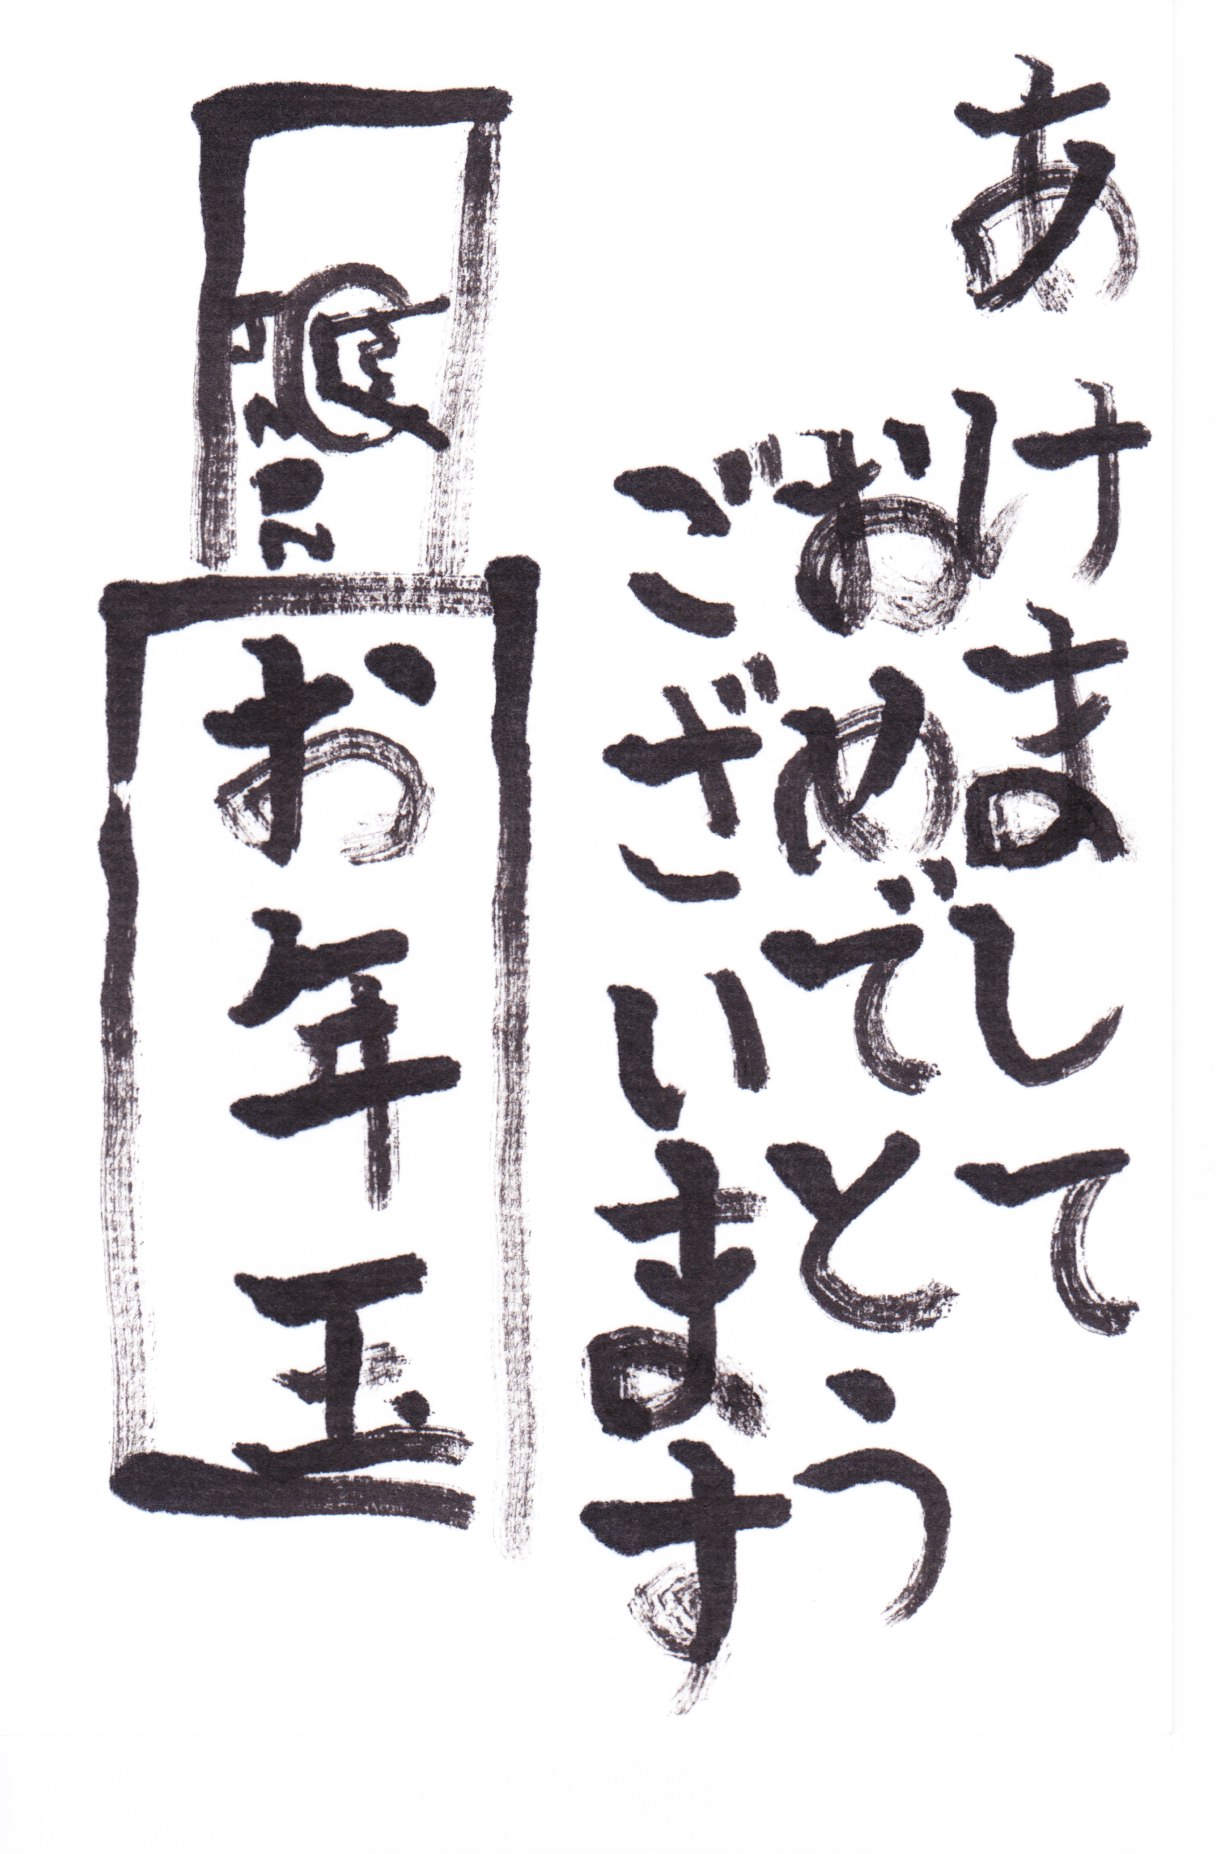 あけまして
おめでとう
ございます
お年玉